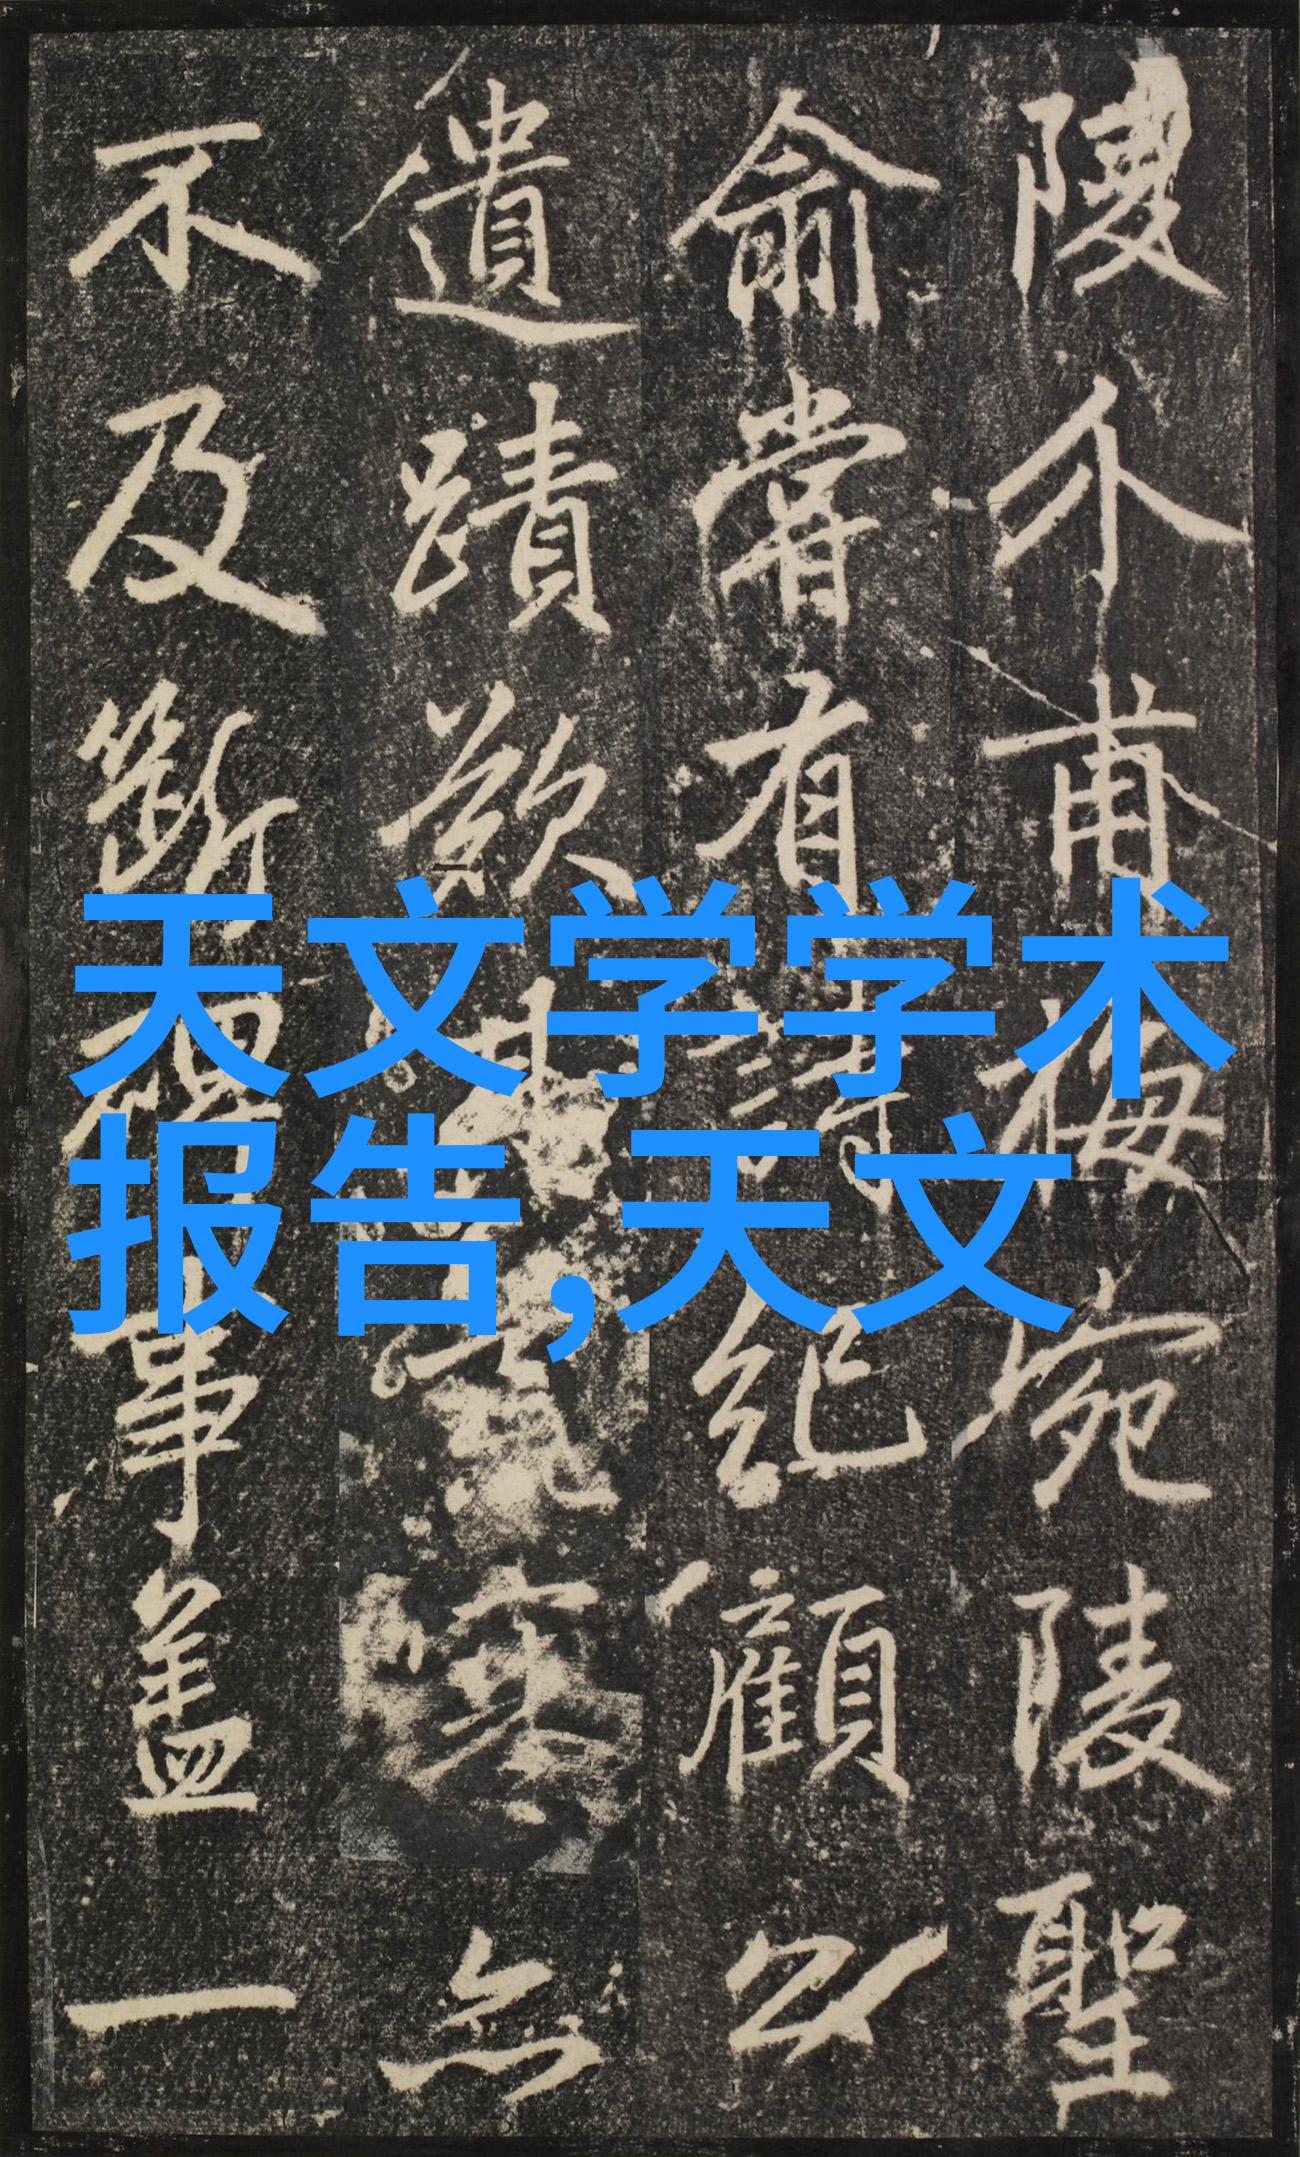 陵介甫梅宛陵聖
俞嘗有詩紀顧以
遺蹟欲塞無
不及斷事蓋一
天文学学术
报告,天文